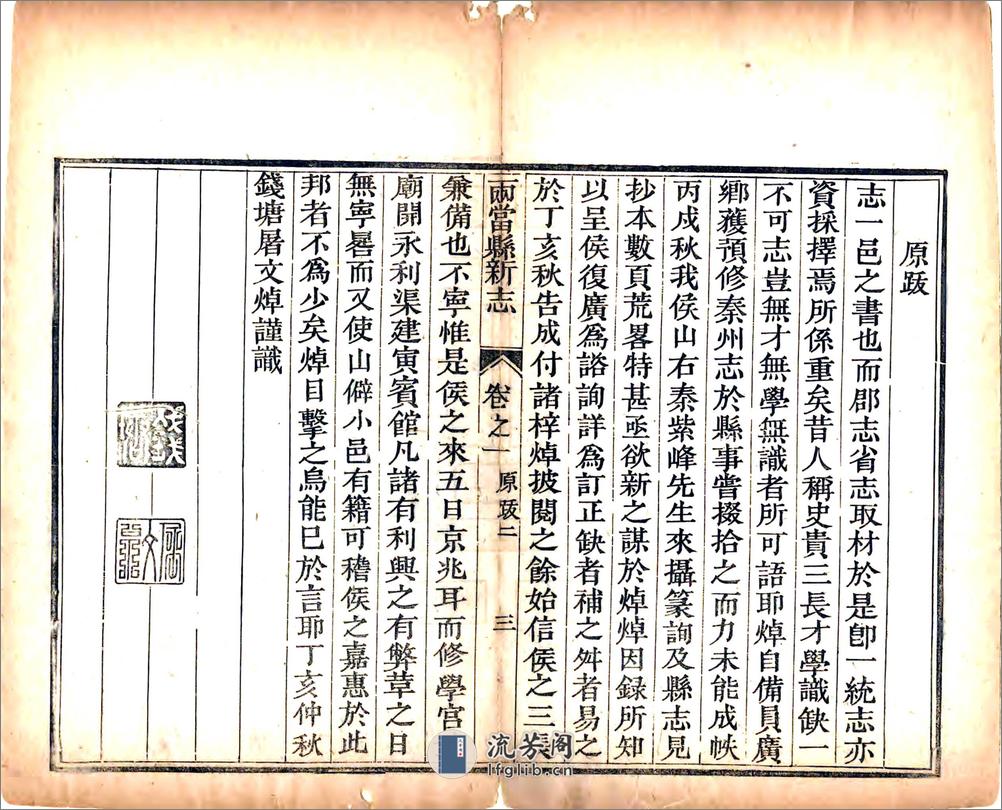 原跋
志一邑之書也而郡志省志取材於是卽一統志亦
資採擇焉所係重矣昔人稱史貴三長才學識缺一
不可志豈無才無學無識者所可語耶焯自備員廣
鄉獲預修秦州志於縣事嘗掇拾之而力未能成帙
丙戍秋我侯山右秦紫峰先生來攝篆詢及縣志見
抄本數頁荒畧特甚亟欲新之謀於焯焯因録所知
以呈侯復廣爲諮詢詳爲訂正缺者補之舛者易之
於丁亥秋告成付諸梓焯披閱之餘始信侯之三長
兩當縣新志 卷之一 原跋二 三
兼備也不寧惟是侯之來五日京兆耳而修學官
廟開永利渠建寅賓館凡諸有利興之有弊草之日
無寧晷而又使山僻小邑有籍可稽侯之嘉惠於此
邦者不爲少矣焯目擊之烏能已於言耶丁亥仲秋
錢塘屠文焯謹識
流芳閣
lfglib.cn